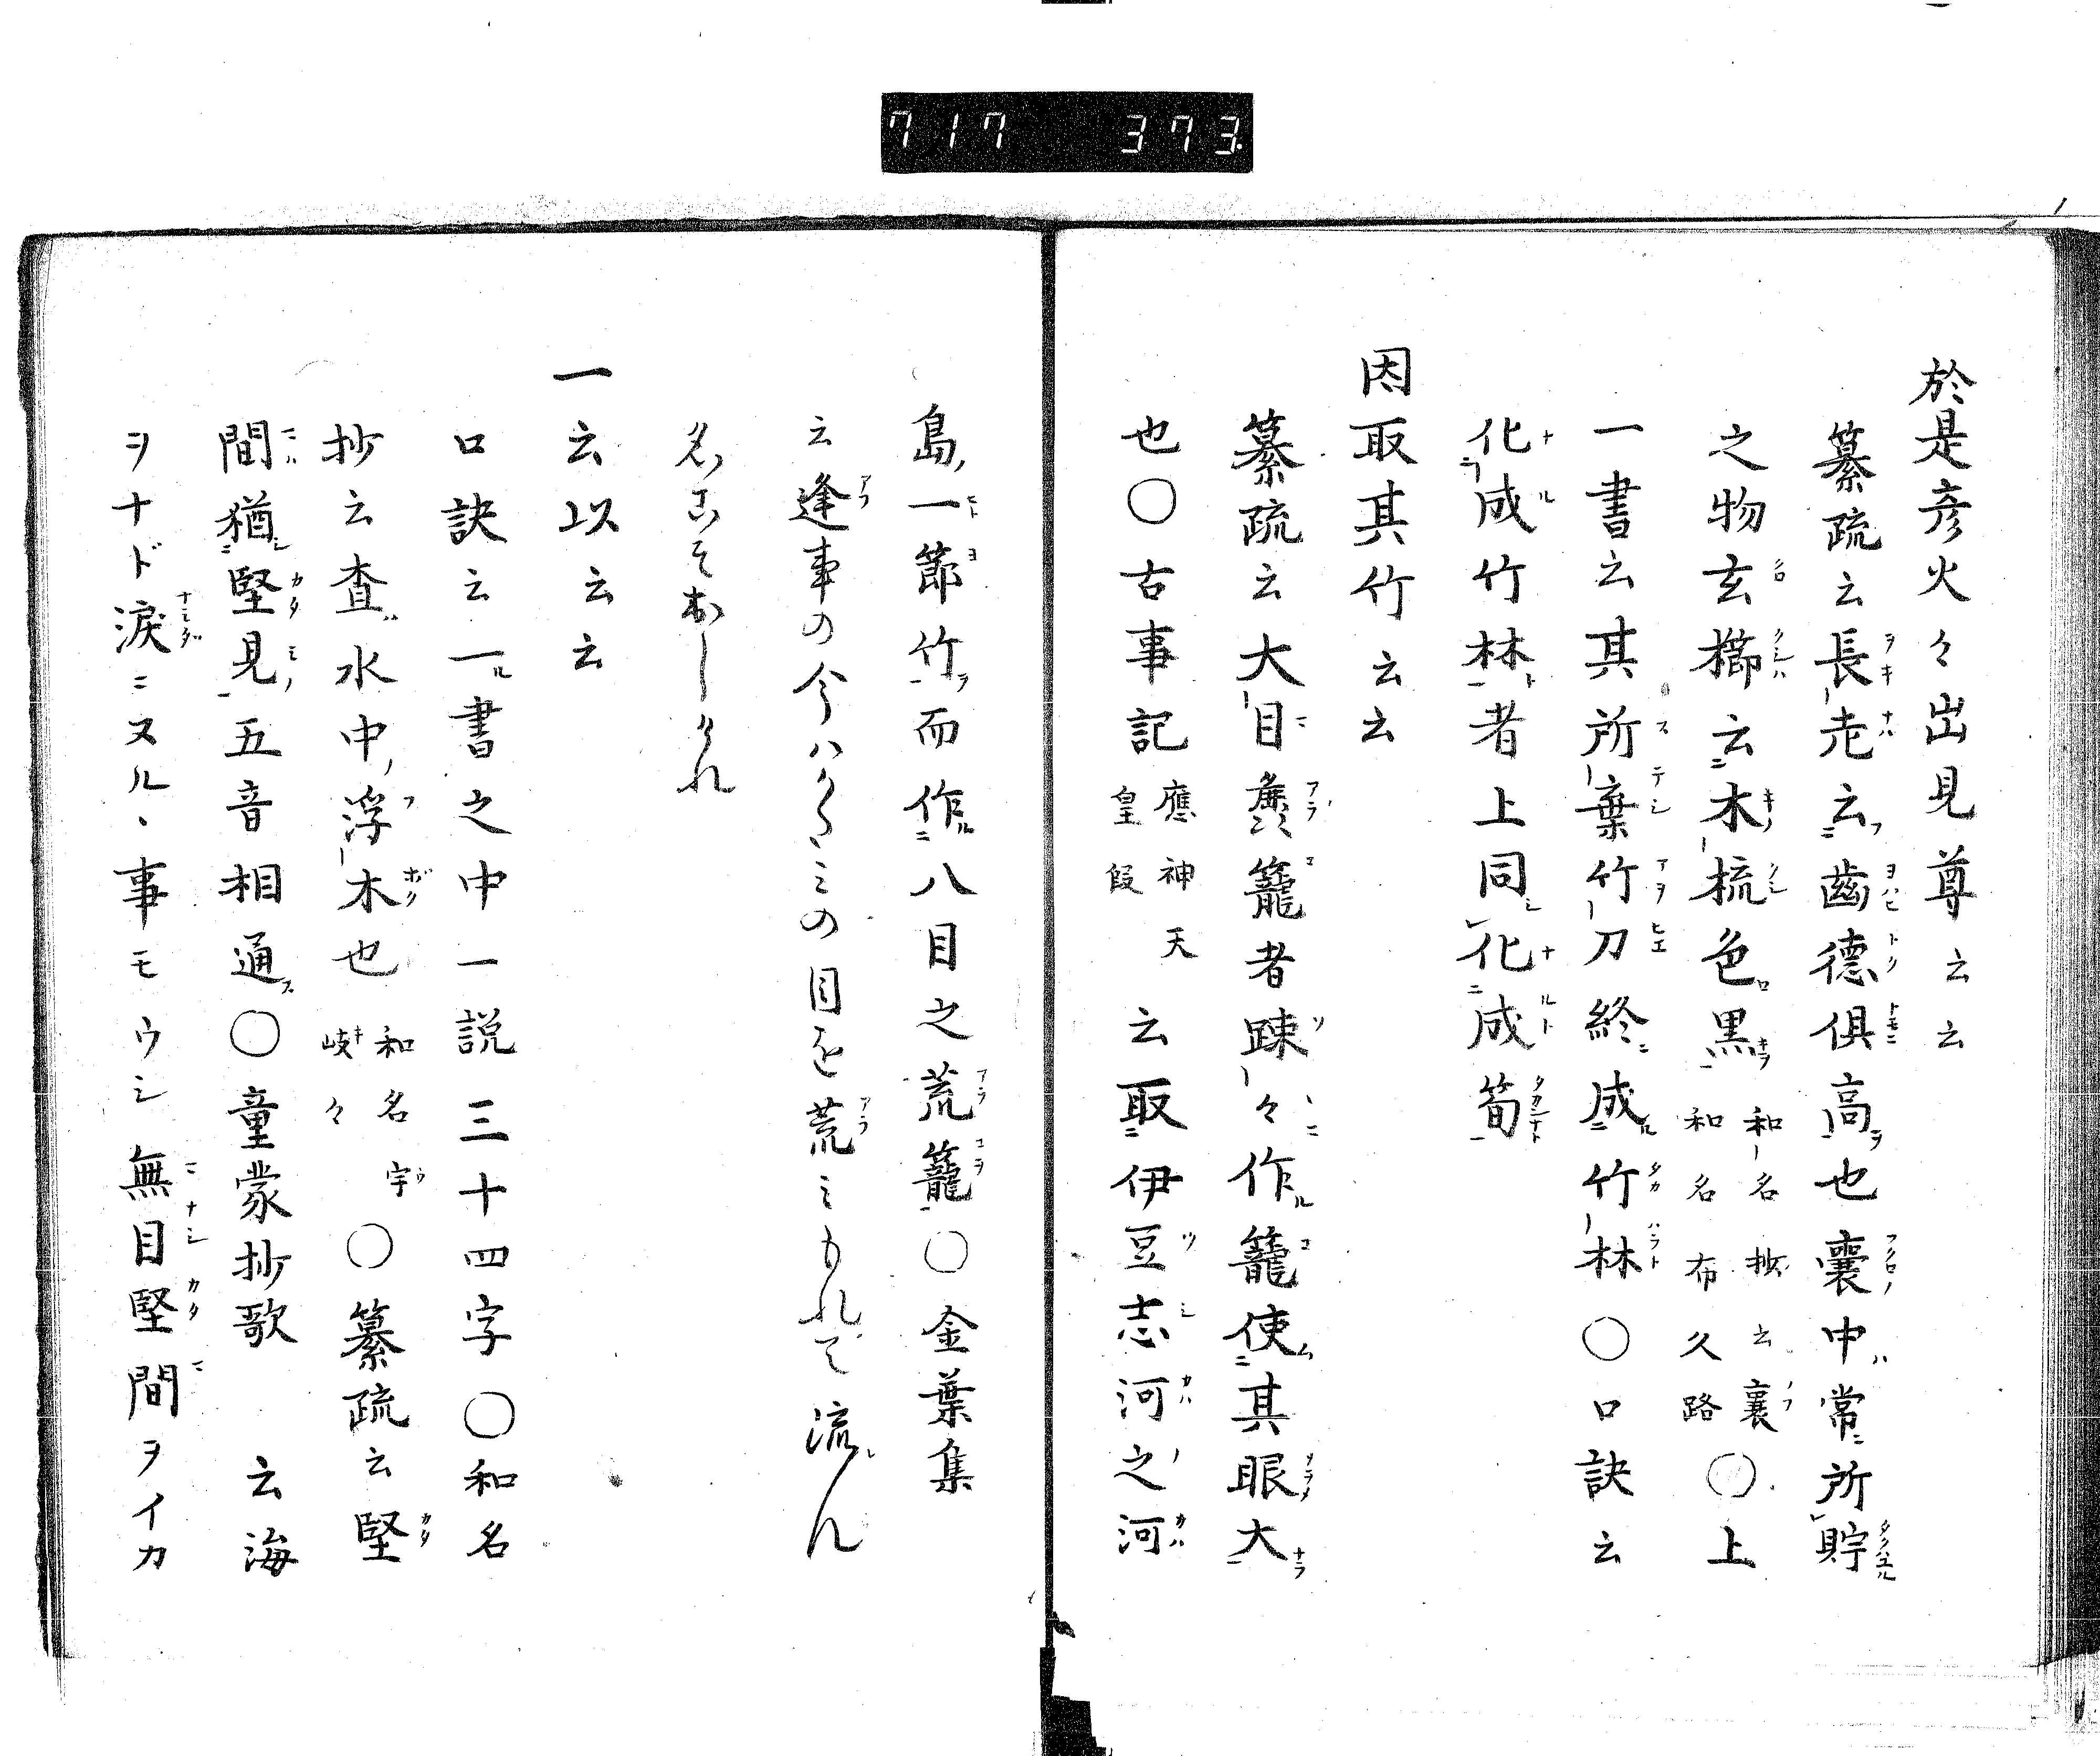 717 373
於是彦火々出見尊云云
纂疏云長老云齒德俱高也囊中常所貯
之物玄櫛云木梳色黒和名抄云囊和名布久路〇上
一書云其所棄竹刀終成竹林〇口訣云
化成竹林者上同化成筍
因取其竹云云
纂疏云大目麁籠者踈々作籠使其眼大
也〇古事記應神天皇段云取伊豆志河之河
島一節竹而作八目之荒籠〇金葉集
云逢事の今ハかたミの目を荒ミもれて流ん
名こそおしけれ
一云以云云
口訣云一書之中一説三十四字〇和名
抄云査水中浮木也和名宇岐々〇纂疏云堅
間猶堅見五音相通〇童蒙抄歌 云海
ヲナド涙ニヌルヽ事モウシ無目堅間ヲイカ